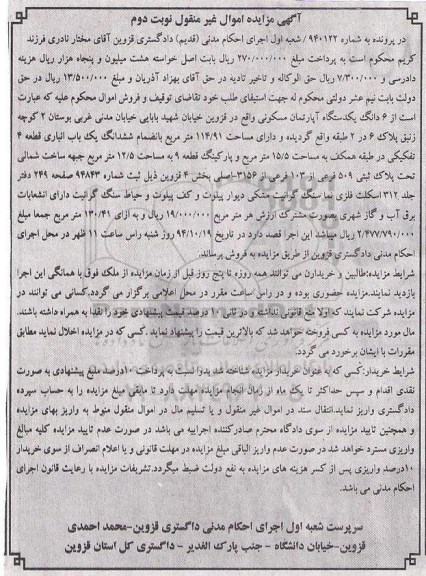 آگهی مزایده اموال غیر منقول نوبت دوم
در پرونده به شماره ۹۴۰۱۲۲ / شعبه اول اجرای احکام مدنی (قدیم) دادگستری قزوین آقای مختار نادری فرزند
کریم محکوم است به پرداخت مبلغ ۲۷۰/۰۰۰/۰۰۰ ریال بابت اصل خواسته هشت میلیون و پنجاه هزار ریال هزینه
دادرسی و ۷/۳۰۰/۰۰۰ ریال حق الوکاله و تاخیر تادیه در حق آقای بهزاد آذریان و مبلغ ۱۳/۵۰۰/۰۰۰ ریال در حق
دولت بابت نیم عشر دولتی محکوم له جهت استیفای طلب خود تقاضای توقیف و فروش اموال محکوم علیه که عبارت
است از ۶ دانگ یکدستگاه آپارتمان مسکونی واقع در قزوین خیابان شهید بابایی خیابان مدنی غربی بوستان ۲ کوچه
زنبق پلاک ۶ در ۲ طبقه واقع گردیده و دارای مساحت ۱۱۴/۹۱ متر مربع بانضمام ششدانگ یک باب انباری قطعه ۴
تفکیکی در طبقه همکف به مساحت ۱۵/۵ متر مربع و پارکینگ قطعه ۹ به مساحت ۱۲/۵ متر مربع جهه ساخت شمالی
تحت پلاک ثبتی ۵۰۹ فرعی از ۱۰۳ فرعی از ۳۱۵۶-اصلی بخش ۴ قزوین ذیل ثبت شماره ۹۴۸۴۳ صفحه ۲۴۹ دفتر
جلد ۳۱۲ اسکلت فلزی نما سنگ گرانیت مشکی دیوار پیلوت و کف پیلوت و حیاط سنگ گرانیت دارای انشعابات
برق آب و گاز شهری بصورت مشترک ارزش هر متر مربع ۱۹/۰۰۰/۰۰۰ ریال و به ازای ۱۳۰/۴۱ متر مربع جمعا مبلغ
۲/۴۷۷/۷۹۰/۰۰۰ ریال میباشد این اجرا قصد دارد در تاریخ ۹۴/۱۰/۱۹ روز شنبه راس ساعت ۱۱ ظهر در محل اجرای
احکام مدنی دادگستری قزوین از طریق مزایده به فروش برساند.
شرایط مزایده:طالبین و خریداران می توانند همه روزه تا پنج روز قبل از زمان مزایده از ملک فوق با همانگی این اجرا
بازدید نمایند.مزایده حضوری بوده و در راس ساعت مقرر در محل اعلامی برگزار می گردد.کسانی می توانند در
مزایده شرکت نمایند که اولا منع قانونی نداشته و در ثانی ۱۰ درصد قیمت پیشنهادی خود را نقدا به همراه داشته باشند.
مال مورد مزایده به کسی فروخته خواهد شد که بالاترین قیمت را پیشنهاد نماید .کسی که در مزایده اخلال نماید مطابق
مقررات با ایشان برخورد می گردد.
شرایط خریدار:کسی که به عنوان خریدار مزایده شناخته شد بدوا نسبت به پرداخت ۱۰درصد مبلغ پیشنهادی به صورت
نقدی اقدام و سپس حداکثر تا یک ماه از زمان انجام مزایده مهلت دارد تا مابقی مبلغ مزایده را به حساب سپرده
دادگستری واریز نماید.انتقال سند در اموال غیر منقول و یا تسلیم مال در اموال منقول منوط به واریز بهای مزایده
و همچنین تایید مزایده از سوی دادگاه محترم صادرکننده اجراییه می باشد در صورت عدم تایید مزایده کلیه مبالغ
واریزی مسترد خواهد شد در صورت عدم واریز الباقی مبلغ مزایده در مهلت قانونی و یا اعلام انصراف از سوی خریدار
۱۰درصد واریزی پس از کسر هزینه های مزایده به نفع دولت ضبط میگردد.تشریفات مزایده با رعایت قانون اجرای
احکام مدنی می باشد.
سرپرست شعبه اول اجرای احکام مدنی داگستری قزوین-محمد احمدی
قزوین-خیابان دانشگاه - جنب پارک الغدیر - دادگستری کل استان قزوین